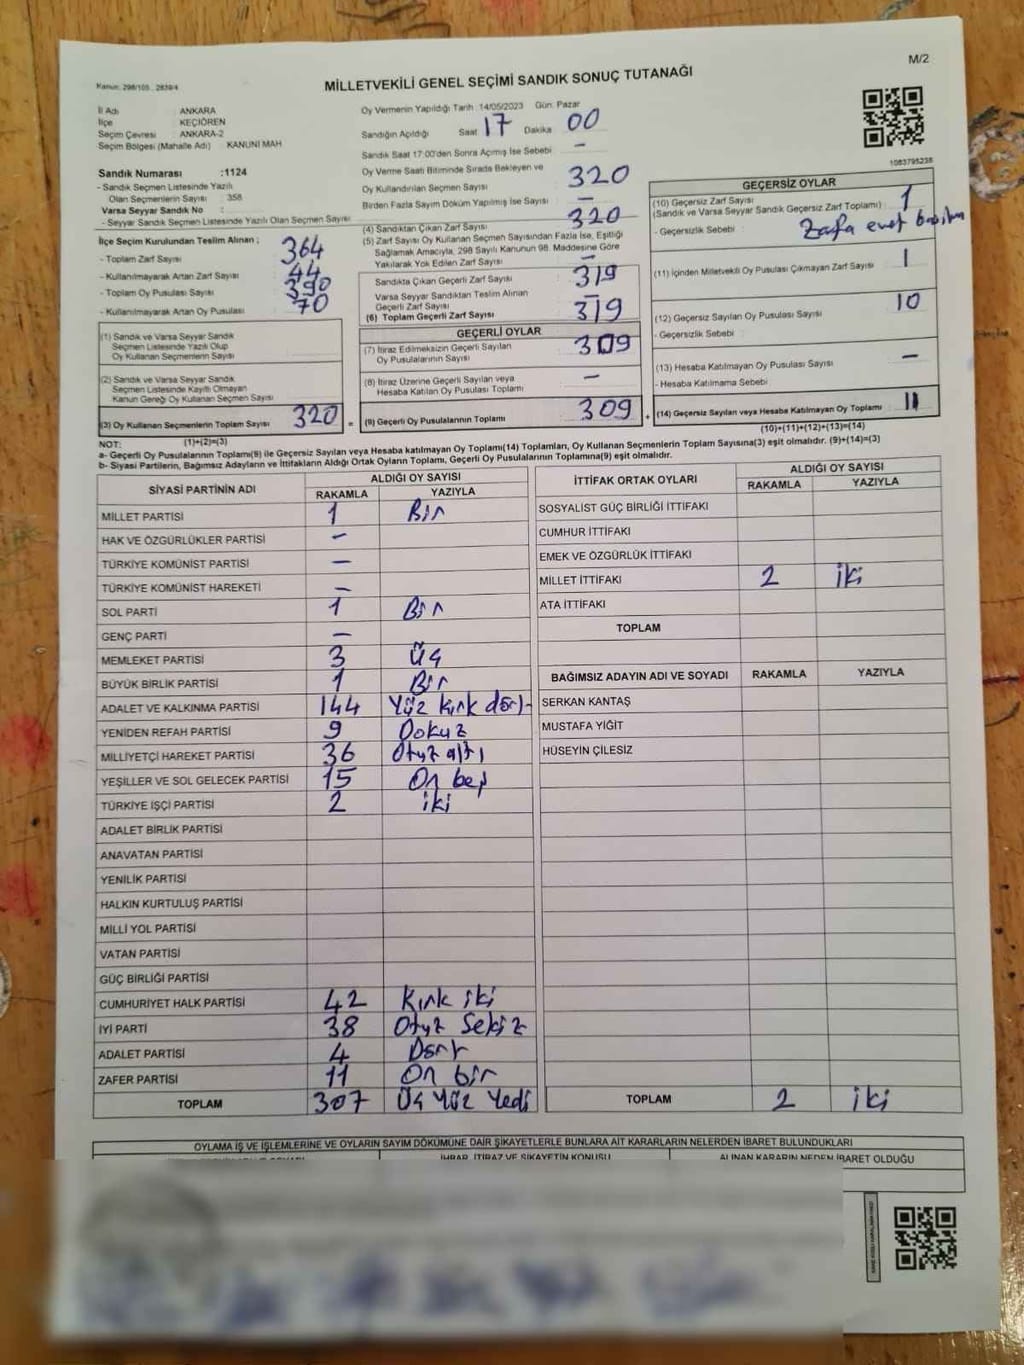 M/2
Kanun: 298/105 , 2839/4
MİLLETVEKİLİ GENEL SEÇİMİ SANDIK SONUÇ TUTANAĞI
İl Adı : ANKARA
İlçe : KEÇİÖREN
Seçim Çevresi : ANKARA-2
Seçim Bölgesi (Mahalle Adı) : KANUNİ MAH
Sandık Numarası :1124
- Sandık Seçmen Listesinde Yazılı
Olan Seçmenlerin Sayısı : 358
Varsa Seyyar Sandık No :
- Seyyar Sandık Seçmen Listesinde Yazılı Olan Seçmen Sayısı
İlçe Seçim Kurulundan Teslim Alınan ;
- Toplam Zarf Sayısı 364
- Kullanılmayarak Artan Zarf Sayısı 44
- Toplam Oy Pusulası Sayısı 390
- Kullanılmayarak Artan Oy Pusulası 70
(1) Sandık ve Varsa Seyyar Sandık
Seçmen Listesinde Yazılı Olup
Oy Kullanan Seçmenlerin Sayısı
(2) Sandık ve Varsa Seyyar Sandık
Seçmen Listesinde Kayıtlı Olmayan
Kanun Gereği Oy Kullanan Seçmen Sayısı
(3) Oy Kullanan Seçmenlerin Toplam Sayısı 320 =
(1)+(2)=(3)
Oy Vermenin Yapıldığı Tarih :14/05/2023 Gün: Pazar
Sandığın Açıldığı Saat 17 Dakika 00
Sandık Saat 17:00'den Sonra Açılmış İse Sebebi : -
Oy Verme Saati Bitiminde Sırada Bekleyen ve
Oy Kullandırılan Seçmen Sayısı 320
Birden Fazla Sayım Döküm Yapılmış İse Sayısı -
(4) Sandıktan Çıkan Zarf Sayısı 320
(5) Zarf Sayısı Oy Kullanan Seçmen Sayısından Fazla İse, Eşitliği
Sağlamak Amacıyla, 298 Sayılı Kanunun 98. Maddesine Göre
Yakılarak Yok Edilen Zarf Sayısı -
Sandıkta Çıkan Geçerli Zarf Sayısı 319
Varsa Seyyar Sandıktan Teslim Alınan
Geçerli Zarf Sayısı -
(6) Toplam Geçerli Zarf Sayısı 319
GEÇERLİ OYLAR
(7) İtiraz Edilmeksizin Geçerli Sayılan
Oy Pusulalarının Sayısı 309
(8) İtiraz Üzerine Geçerli Sayılan veya
Hesaba Katılan Oy Pusulası Toplamı -
(9) Geçerli Oy Pusulalarının Toplamı 309 +
1083795238
GEÇERSİZ OYLAR
(10) Geçersiz Zarf Sayısı
(Sandık ve Varsa Seyyar Sandık Geçersiz Zarf Toplamı) 1
- Geçersizlik Sebebi : Zarfa evet
(11) İçinden Milletvekili Oy Pusulası Çıkmayan Zarf Sayısı 1
(12) Geçersiz Sayılan Oy Pusulası Sayısı 10
- Geçersizlik Sebebi :
(13) Hesaba Katılmayan Oy Pusulası Sayısı -
- Hesaba Katılmama Sebebi
(14) Geçersiz Sayılan veya Hesaba Katılmayan Oy Toplamı 11
(10)+(11)+(12)+(13)=(14)
NOT:
a- Geçerli Oy Pusulalarının Toplamı(9) ile Geçersiz Sayılan veya Hesaba katılmayan Oy Toplamı(14) Toplamları, Oy Kullanan Seçmenlerin Toplam Sayısına(3) eşit olmalıdır. (9)+(14)=(3)
b- Siyasi Partilerin, Bağımsız Adayların ve İttifakların Aldığı Ortak Oyların Toplamı, Geçerli Oy Pusulalarının Toplamına(9) eşit olmalıdır.
SİYASİ PARTİNİN ADI ALDIĞI OY SAYISI
RAKAMLA YAZIYLA
MİLLET PARTİSİ 1 Bir
HAK VE ÖZGÜRLÜKLER PARTİSİ -
TÜRKİYE KOMÜNİST PARTİSİ -
TÜRKİYE KOMÜNİST HAREKETİ -
SOL PARTİ 1 Bir
GENÇ PARTİ -
MEMLEKET PARTİSİ 3 Üç
BÜYÜK BİRLİK PARTİSİ 1 Bir
ADALET VE KALKINMA PARTİSİ 144 Yüz kırk dört
YENİDEN REFAH PARTİSİ 9 Dokuz
MİLLİYETÇİ HAREKET PARTİSİ 36 Otuz altı
YEŞİLLER VE SOL GELECEK PARTİSİ 15 On beş
TÜRKİYE İŞÇİ PARTİSİ 2 iki
ADALET BİRLİK PARTİSİ
ANAVATAN PARTİSİ
YENİLİK PARTİSİ
HALKIN KURTULUŞ PARTİSİ
MİLLİ YOL PARTİSİ
VATAN PARTİSİ
GÜÇ BİRLİĞİ PARTİSİ
CUMHURİYET HALK PARTİSİ 42 Kırk iki
İYİ PARTİ 38 Otuz Sekiz
ADALET PARTİSİ 4 Dört
ZAFER PARTİSİ 11 On bir
TOPLAM 307 Üç Yüz Yedi
İTTİFAK ORTAK OYLARI ALDIĞI OY SAYISI
RAKAMLA YAZIYLA
SOSYALİST GÜÇ BİRLİĞİ İTTİFAKI
CUMHUR İTTİFAKI
EMEK VE ÖZGÜRLÜK İTTİFAKI
MİLLET İTTİFAKI 2 iki
ATA İTTİFAKI
TOPLAM
BAĞIMSIZ ADAYIN ADI VE SOYADI RAKAMLA YAZIYLA
SERKAN KANTAŞ
MUSTAFA YİĞİT
HÜSEYİN ÇİLESİZ
TOPLAM 2 iki
OYLAMA İŞ VE İŞLEMLERİNE VE OYLARIN SAYIM DÖKÜMÜNE DAİR ŞİKAYETLERLE BUNLARA AİT KARARLARIN NELERDEN İBARET BULUNDUKLARI
İHBAR, İTİRAZ VE ŞİKAYETİN KONUSU ALINAN KARARIN NEDEN İBARET OLDUĞU